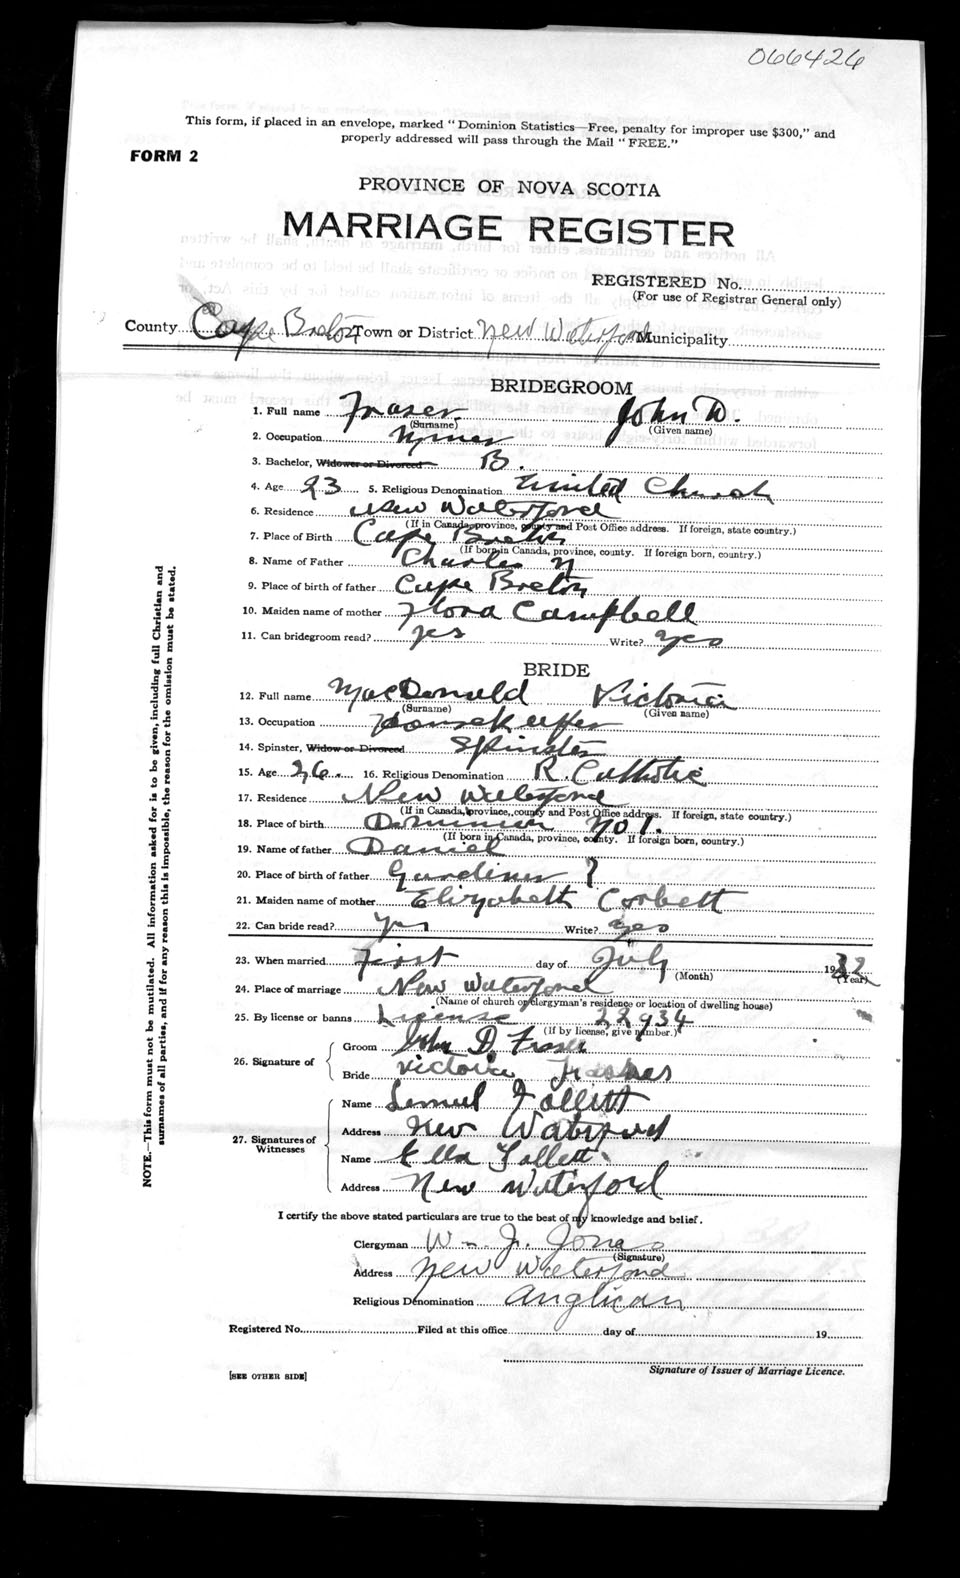 066426
This form, if placed in an envelope, marked "Dominion Statistics—Free, penalty for improper use $300," and
properly addressed will pass through the Mail "FREE."
FORM 2
PROVINCE OF NOVA SCOTIA
MARRIAGE REGISTER
REGISTERED No.
(For use of Registrar General only)
County Cape Breton Town or District New Waterford Municipality
BRIDEGROOM
1. Full name Fraser John D.
(Surname) (Given name)
2. Occupation Miner
3. Bachelor, Widower or Divorced B.
4. Age 23 5. Religious Denomination United Church
6. Residence New Waterford
(If in Canada, province, county and Post Office address. If foreign, state country.)
7. Place of Birth Cape Breton
(If born in Canada, province, county. If foreign born, country.)
8. Name of Father Charles N
9. Place of birth of father Cape Breton
10. Maiden name of mother Flora Campbell
11. Can bridegroom read? yes Write? yes
BRIDE
12. Full name MacDonald Victoria
(Surname) (Given name)
13. Occupation Housekeeper
14. Spinster, Widow or Divorced Spinster
15. Age 26 16. Religious Denomination R. Catholic
17. Residence New Waterford
(If in Canada, province, county and Post Office address. If foreign, state country.)
18. Place of birth Dominion No 1.
(If born in Canada, province, county. If foreign born, country.)
19. Name of father Daniel
20. Place of birth of father Gardiner ?
21. Maiden name of mother Elizabeth Corbett
22. Can bride read? yes Write? yes
23. When married First day of July 19
(Month) (Year)
24. Place of marriage New Waterford
(Name of church or clergyman's residence or location of dwelling house)
25. By license or banns License 22934
(If by license, give number.)
26. Signature of
Groom John D. Fraser
Bride Victoria
27. Signatures of
Witnesses
Name Lemuel Follett
Address New Waterford
Name Ella Follett
Address New Waterford
I certify the above stated particulars are true to the best of my knowledge and belief.
Clergyman W. J. Jones
(Signature)
Address New Waterford
Religious Denomination Anglican
Registered No. Filed at this office day of 19
Signature of Issuer of Marriage Licence.
[SEE OTHER SIDE]
NOTE.—This form must not be mutilated. All information asked for is to be given, including full Christian and
surnames of all parties, and if for any reason this is impossible, the reason for the omission must be stated.